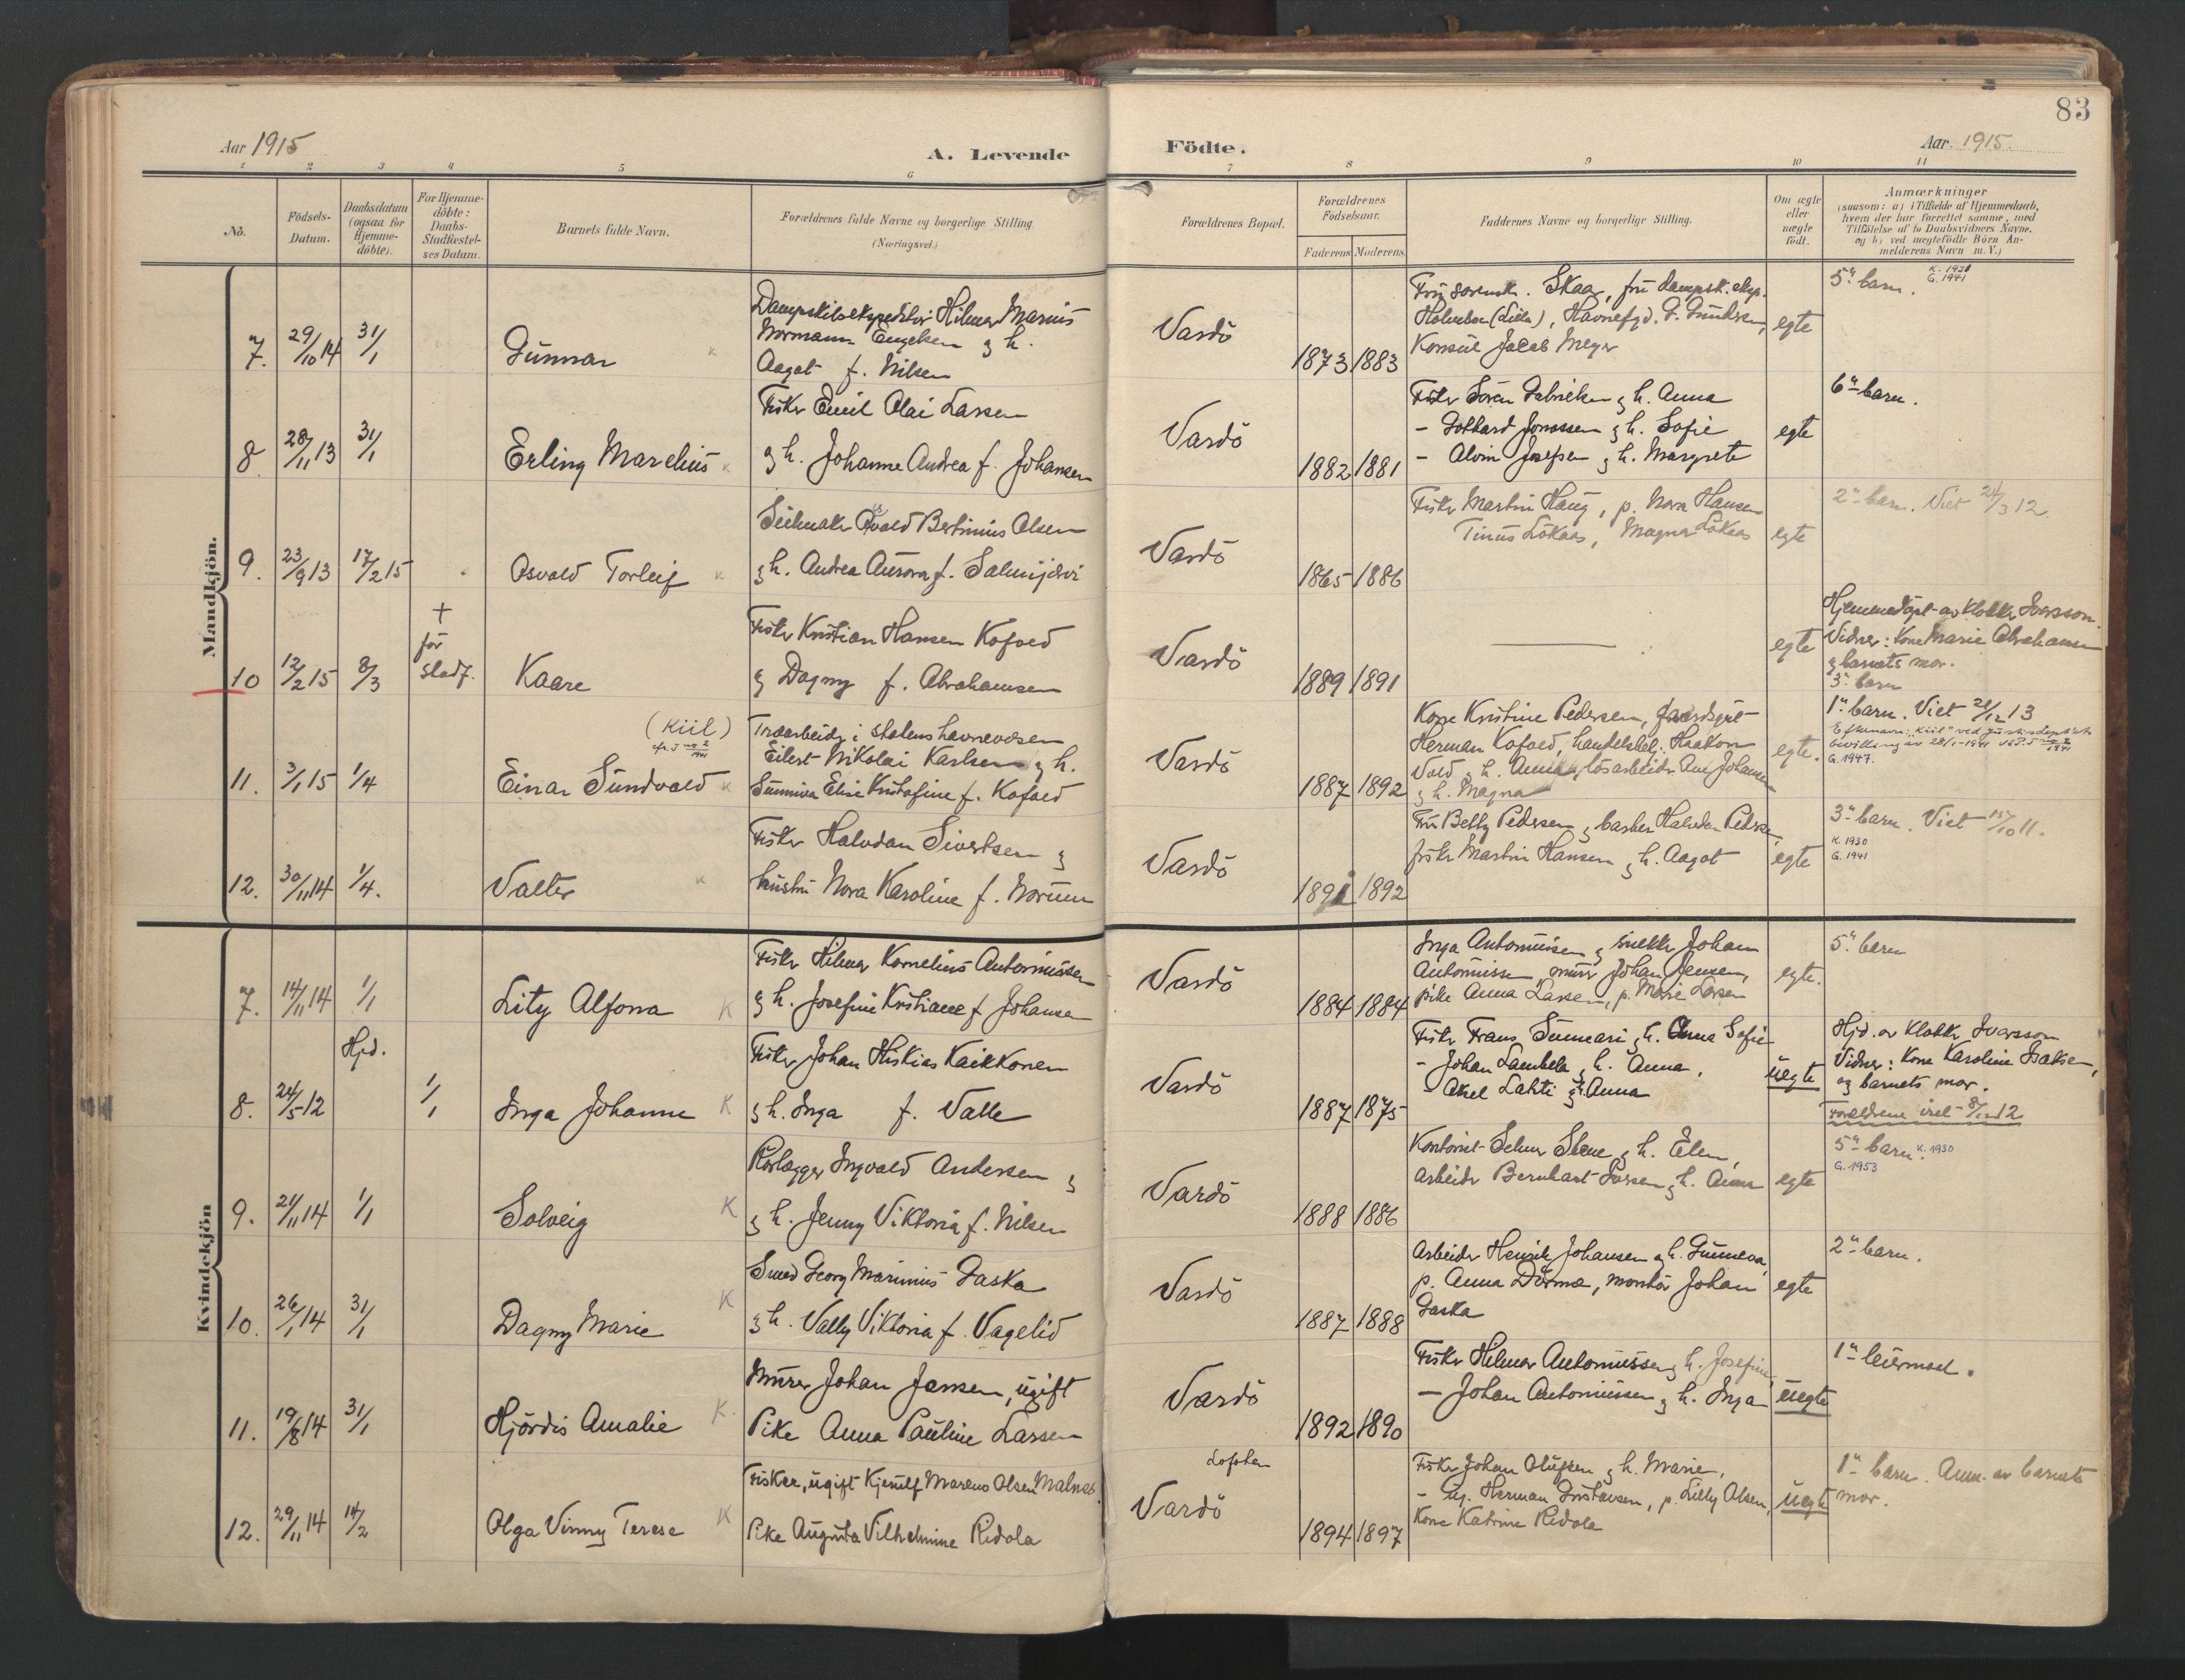 83
Aar 1915
A. Levende
Födte.
Aar 1915.
1 2 3 4 5 6 7 8 9 10 11
No.
Födsels-Datum.
Daabsdatum (ogsaa for Hjemme-döbte).
For Hjemme-döbte: Daabs-Stadfæstel-ses Datum.
Barnets fulde Navn.
Forældrenes fulde Navne og borgerlige Stilling (Næringsvei.)
Forældrenes Bopæl.
Forældrenes Födselsaar.
Faderens Moderens
Faddernes Navne og borgerlige Stilling.
Om ægte eller uægte födt.
Anmærkninger
(saasom: a) i Tilfælde af Hjemmedaab, hvem der har forrettet samme, med Tilföielse af to Daabsvidners Navne, og b) ved uægtefödte Börn An-melderens Navn m.V.)
Mandkjön.
7. 29/10 14 31/1
Gunnar
Dampskibsekspeditör Hilmar Marius
Normann Engelsen g h.
Aagot f. Nilsen
Vardö
1873 1883
Skaar, fru dampsk.eksp.
Holmboe (Lilla), Havnefgd. G. Gundersen,
Konsul Jacob Meyer
egte
5te barn. K. 1931
G. 1941
8 28/11 13 31/1
Erling Marelius
Fisker Emil Olai Larsen
g h. Johanne Andrea f. Johansen
Vardö
1882 1881
Fisker Sören Gabrielsen g h. Anna
- Gothard Jonassen g h. Sofie
- Alvin Josefsen g h. Margrete
egte
6te barn.
9. 23/9 13 17/2 15
Osvald Torleif
Seilmaker Osvald Bertinius Olsen
g h. Andrea Aurora f. Salmijervi
Vardö
1865 1886
Fisker Martin Haug, p. Nora Hansen
Tinus Lökaas, Magna Lökaas
egte
2te barn. Viet 24/3 12.
10 12/2 15 8/3
+
för
stadf.
Kaare
Fisker Kristian Hansen Kofoed
g Dagny f. Abrahamsen
Vardö
1889 1891
egte
Hjemmedöpt av klokker Ivarsson.
Vidner: Kone Marie Abrahamsen
g barnets mor.
3te barn
11. 3/1 15 1/4
(Kiil)
Einar Sundvald
Træarbeider i statens havnevæsen
Eilert Nikolai Karlsen g h.
Sunniva Elise Kristofine f. Kofoed
Vardö
1887 1892
Kone Kristine Pedersen,
Herman Kofoed, handelsbetj. Haakon
Vold g h. Anna, lösarbeider Johansen
g h. Magna
egte.
1te barn. Viet 21/12 13
Efternavn: "Kiil" ved Justisdep'tets
bevilling av 28/1-1941
G. 1947.
12. 30/11 14 1/4.
Valter
Fisker Halvdan Sivertsen g
hustru Nora Karoline f. Norum
Vardö
1891 1892
Fru Betty Pedersen g barber Halvdan Pedersen,
fisker Martin Hansen g h. Aagot
egte
3te barn. Viet 15/10 11.
K. 1930
G. 1941
Kvindekjön
7. 14/11 14 1/1
Lily Alfona K
Fisker Hilmar Kornelius Antoniussen
g h. Josefine Kristiane f. Johansen
Vardö
1884 1884
Inga Antoniussen g snekker Johan
Antoniussen, murer Johan Jensen,
pike Anna Larsen, p. Marie Larsen
egte.
5te barn
8. 24/5 12 Hjd. 1/1
Inga Johanne K
Fisker Johan Hiskias Kaikkonen
g h. Inga f. Valle
Vardö
1887 1875
Fisker Frans Summari g h. Anna Sofie
- Johan Lambela g h. Anna.
- Aksel Lahti g h. Anna
uegte
Hjd. av klokker Ivarsson
Vidner: Kone Karoline Isaksen,
og barnets mor.
Forældrene viet 8/12 12
9. 21/11 14 1/1
Solveig K
Rörlægger Ingvald Andersen g
g h. Jenny Viktoria f. Nilsen
Vardö
1888 1886
Kontorist Selmer Stene g h. Elen,
arbeider Bernhart Larsen g h. Anna
egte
5te barn. K. 1930
G. 1953
10. 26/1 14 31/1
Dagny Marie K
Smed Georg Marinius Gaska
g h. Vally Viktoria f. Vagelid
Vardö
1887 1888
Arbeider Henrik Johansen g h. Gunneva,
p. Anna Dörmæ, montör Johan
Gaska
egte
2te barn.
11. 19/8 14 31/1
Hjördis Amalie K.
Murer Johan Jensen, ugift
Pike Anna Pauline Larsen
Vardö
1892 1890
Fisker Hilmar Antoniussen g h. Josefine,
- Johan Antoniussen g h. Inga
uegte
1te leiermaal.
12. 29/11 14 14/2
Olga Vinny Terese K
Fisker, ugift Kjerulf Marenus Olsen Malnes.
Pike Augusta Vilhelmine Ridola
Lofoten
Vardö
1894 1897
Fisker Johan Olufsen g h. Marie,
- ug. Herman Gustavsen, p. Lilly Olsen,
Kone Katrine Ridola
uegte
1te barn. Anm. av barnets
mor.